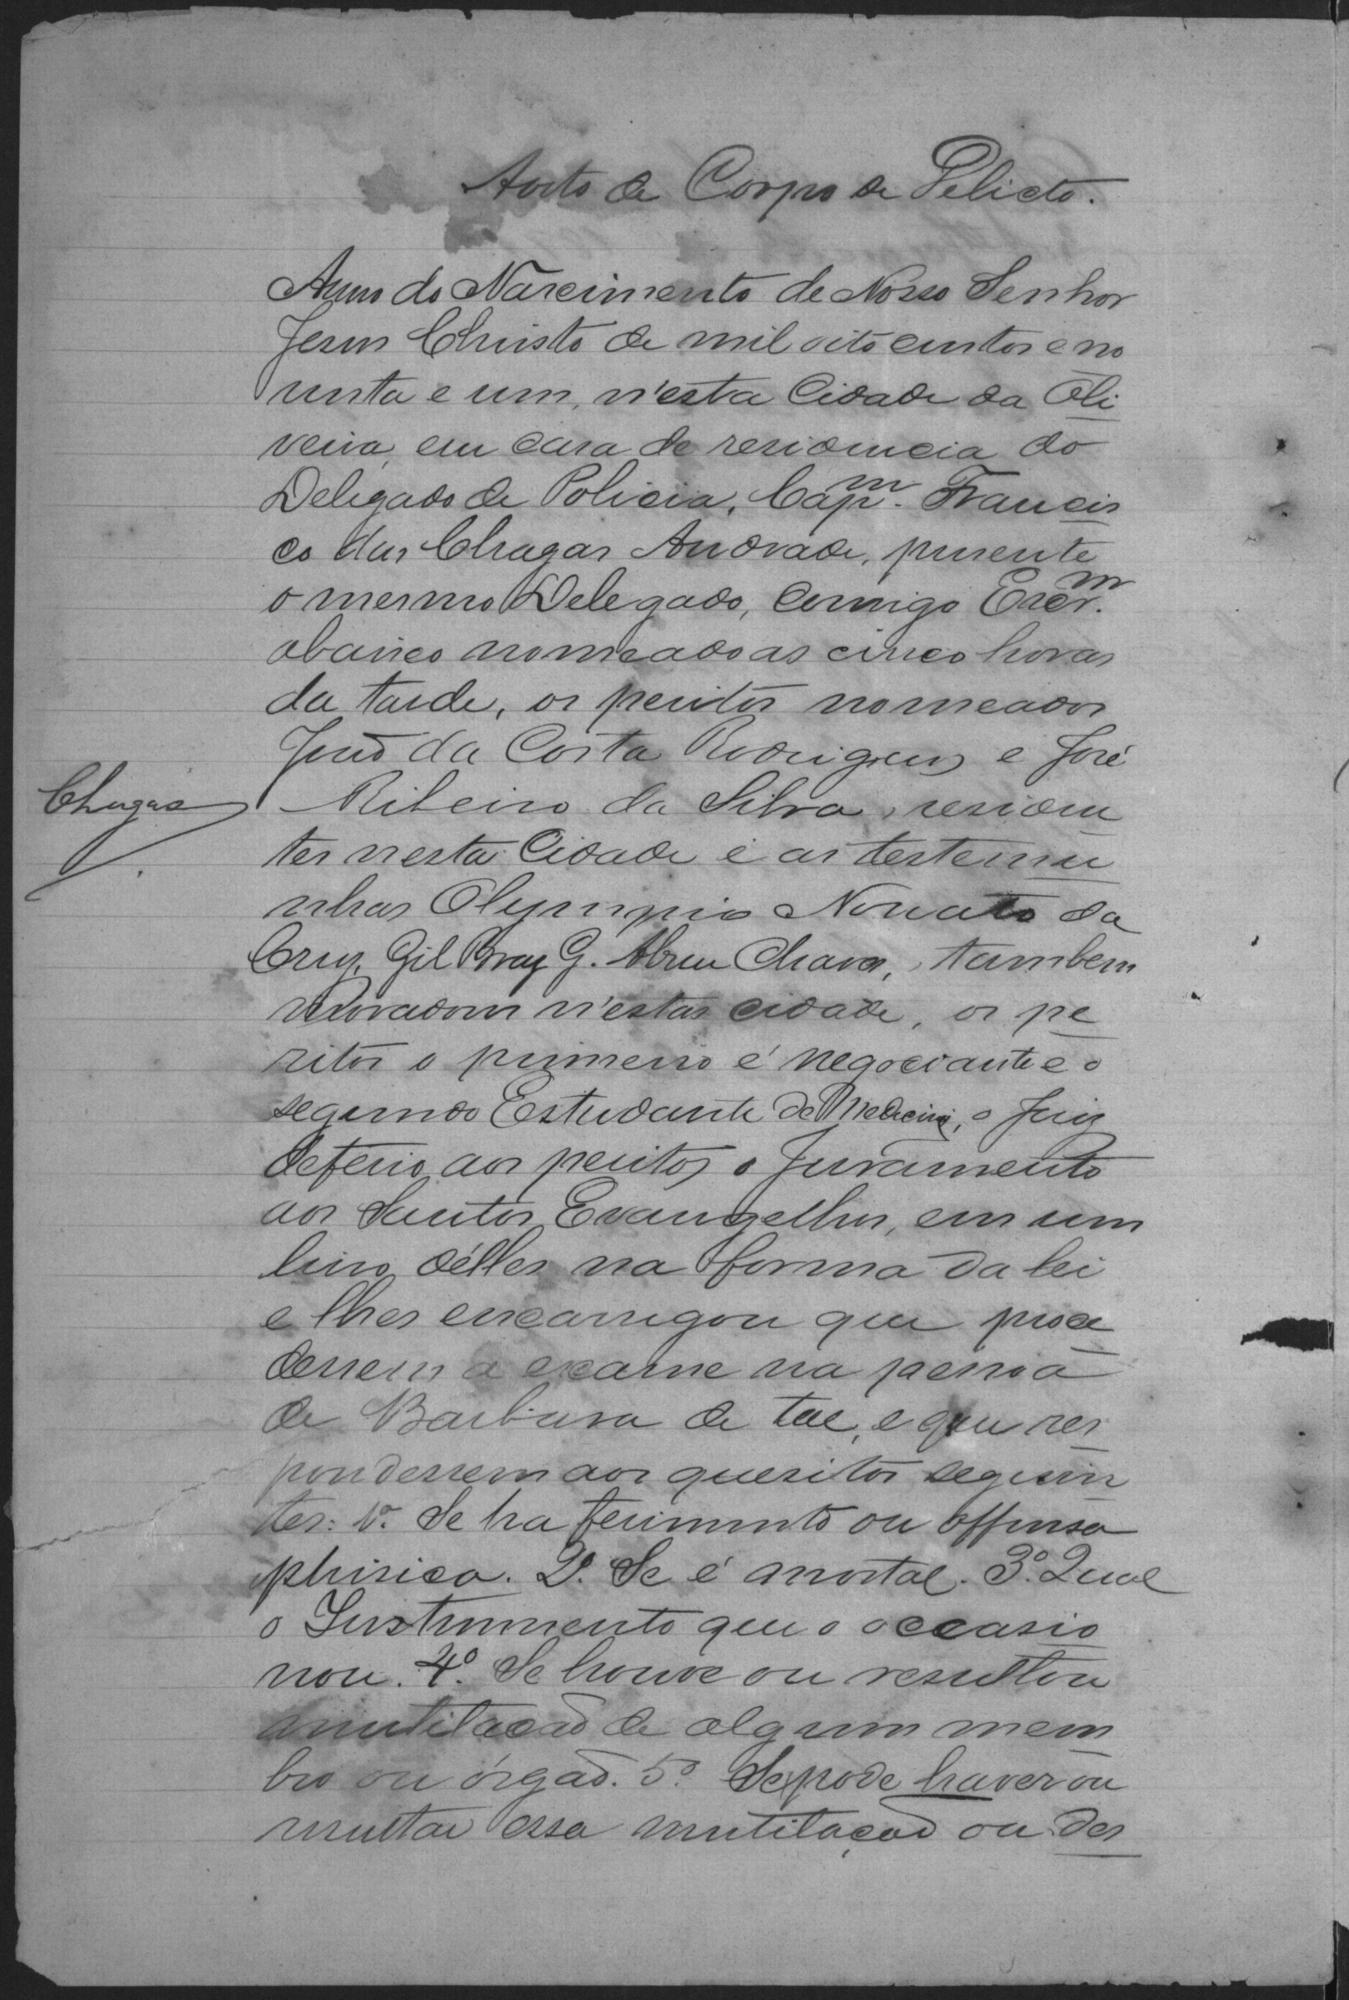 Aucto de Corpo de Delicto.
Anno do Nascimento de Nosso Senhor
Jesus Christo de mil oito centos e no
venta e um, n'esta Cidade da Oli
veira, em casa de residencia do
Delegado de Policia, Capm. Francis
co das Chagas Andrade, presente
o mesmo Delegado, comigo Escrm.
abaixo nomeado as cinco horas
da tarde, os peritos nomeados
João da Costa Rodrigues e José
Chagas
Ribeiro da Silva, residen
tes nesta Cidade e as testemu
nhas Olympio Nonato da
Cruz, Gil Braz G. Abreu Chaves, tambem
Moradores n'estas cidade, os pe
ritos o primeiro é negociante e o
segundo Estudante de Medicina, o Juiz
deferio aos peritos o Juramento
aos Santos Evangelhos, em um
livro délles na forma da lei
e lhes encarregou que proce
dessem a exame na pessoa
de Barbara de tal, e que res
pondessem aos quesitos seguin
tes: 1º. Se ha ferimento ou offensa
phisica. 2º. Se é mortal. 3º. Qual
o Instrumento que o occasio
nou. 4º. Se houve ou resultou
mutilação de algum mem
bro ou órgão. 5º Se pode haver ou
resultar essa mutilação ou des